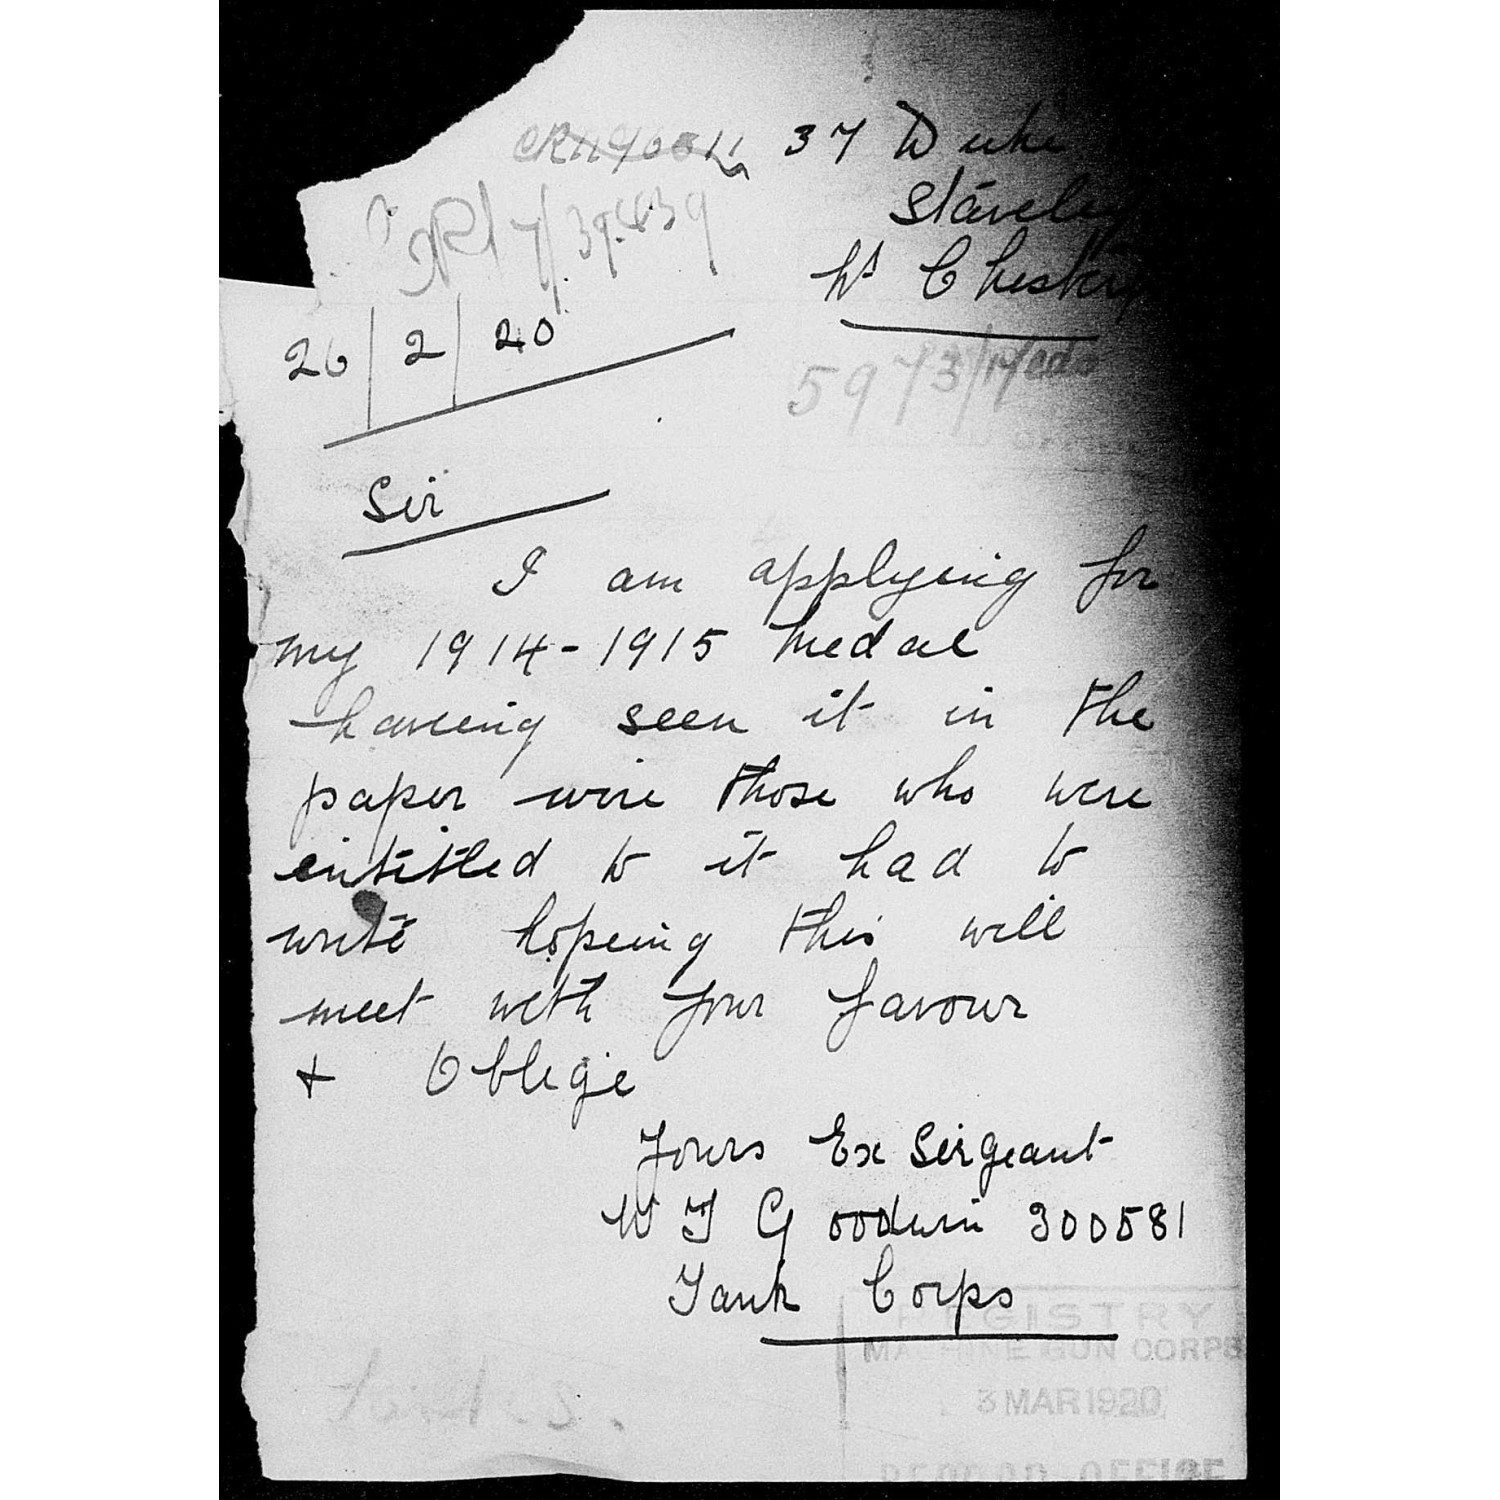 37 Duke
Staveley
Nr Chesterf
26/2/20
5973/17/Cds
Sir
I am applying for
my 1914-1915 Medal
haveing seen it in the
paper wire those who were
entitled to it had to
write hopeing this will
meet with your favour
+ Oblege
Yours Ex Sergeant
W T Goodwin 300581
Tank Corps
REGISTRY
MACHINE GUN CORPS
3 MAR 1920
RECORD OFFICE
Tanks.